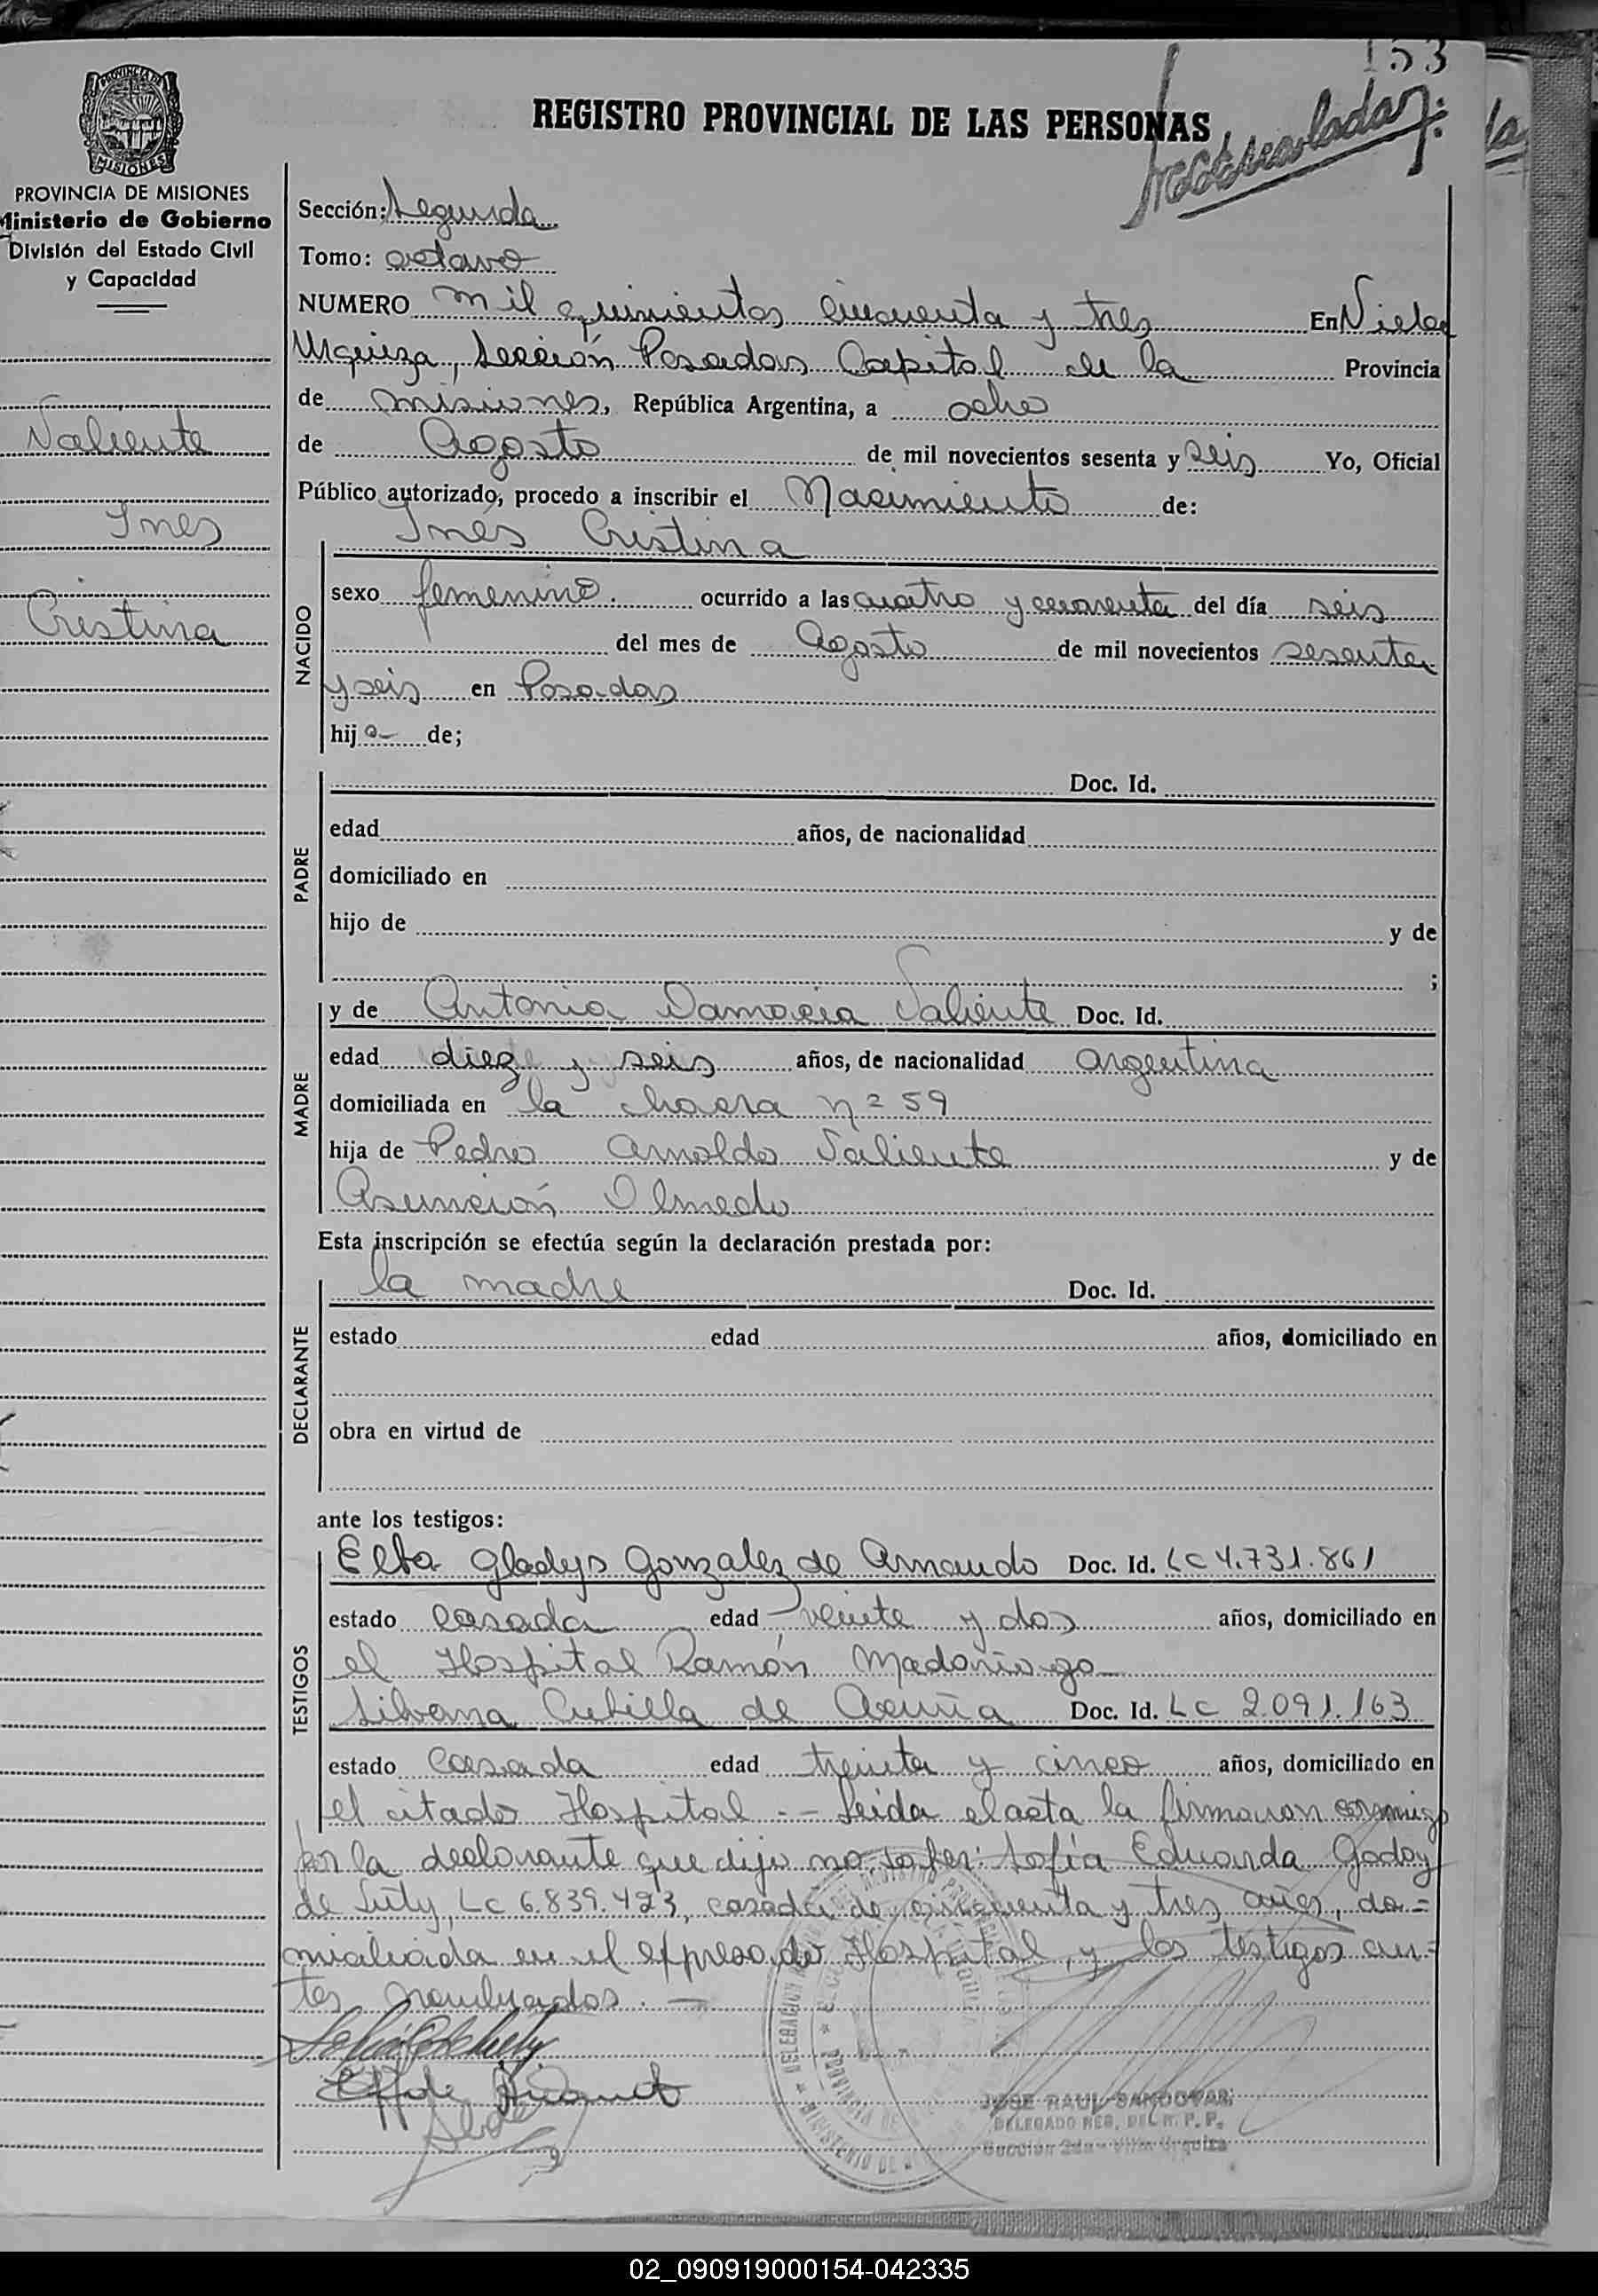 153
REGISTRO PROVINCIAL DE LAS PERSONAS
MISIONES
PROVINCIA DE MISIONES
Ministerio de Gobierno
División del Estado Civil
y Capacidad
Valiente
Ines
Cristina
Sección: Segunda
Tomo: octavo
NUMERO mil quinientos cincuenta y tres En Villa
Urquiza, Sección Posadas Capital de la Provincia
de misiones, República Argentina, a ocho
de Agosto de mil novecientos sesenta y seis Yo, Oficial
Público autorizado, procedo a inscribir el Nacimiento de:
Inés Cristina
NACIDO
sexo femenino. ocurrido a las cuatro y cuarenta del día seis
del mes de Agosto de mil novecientos sesenta
y seis en Posadas
hija de;
PADRE
Doc. Id.
edad años, de nacionalidad
domiciliado en
hijo de y de
;
MADRE
y de Antonia Damacia Valiente Doc. Id.
edad diez y seis años, de nacionalidad argentina
domiciliada en la chacra nº 59
hija de Pedro Arnoldo Valiente y de
Asunción Olmedo
Esta inscripción se efectúa según la declaración prestada por:
DECLARANTE
la madre Doc. Id.
estado edad años, domiciliado en
obra en virtud de
ante los testigos:
TESTIGOS
Elba Gladys Gonzalez de Doc. Id. LC 4.731.861
estado casada edad veinte y dos años, domiciliado en
el Hospital Ramón Madariaga
Silvana Cubilla de Acuña Doc. Id. LC 2.091.163
estado casada edad treinta y cinco años, domiciliado en
el citado Hospital .- - Leida el acta la firmaron conmigo
por la declarante que dijo no saber: Sofía Eduarda Godoy
de LC 6.839.423, casada de cincuenta y tres años, do=
miciliada en el expresado Hospital, y los testigos an=
tes nombrados. -
JOSE RAUL SANDOVAL
DELEGADO REG. DEL R. P. P.
Sección 2da - Villa Urquiza
02_090919000154-042335